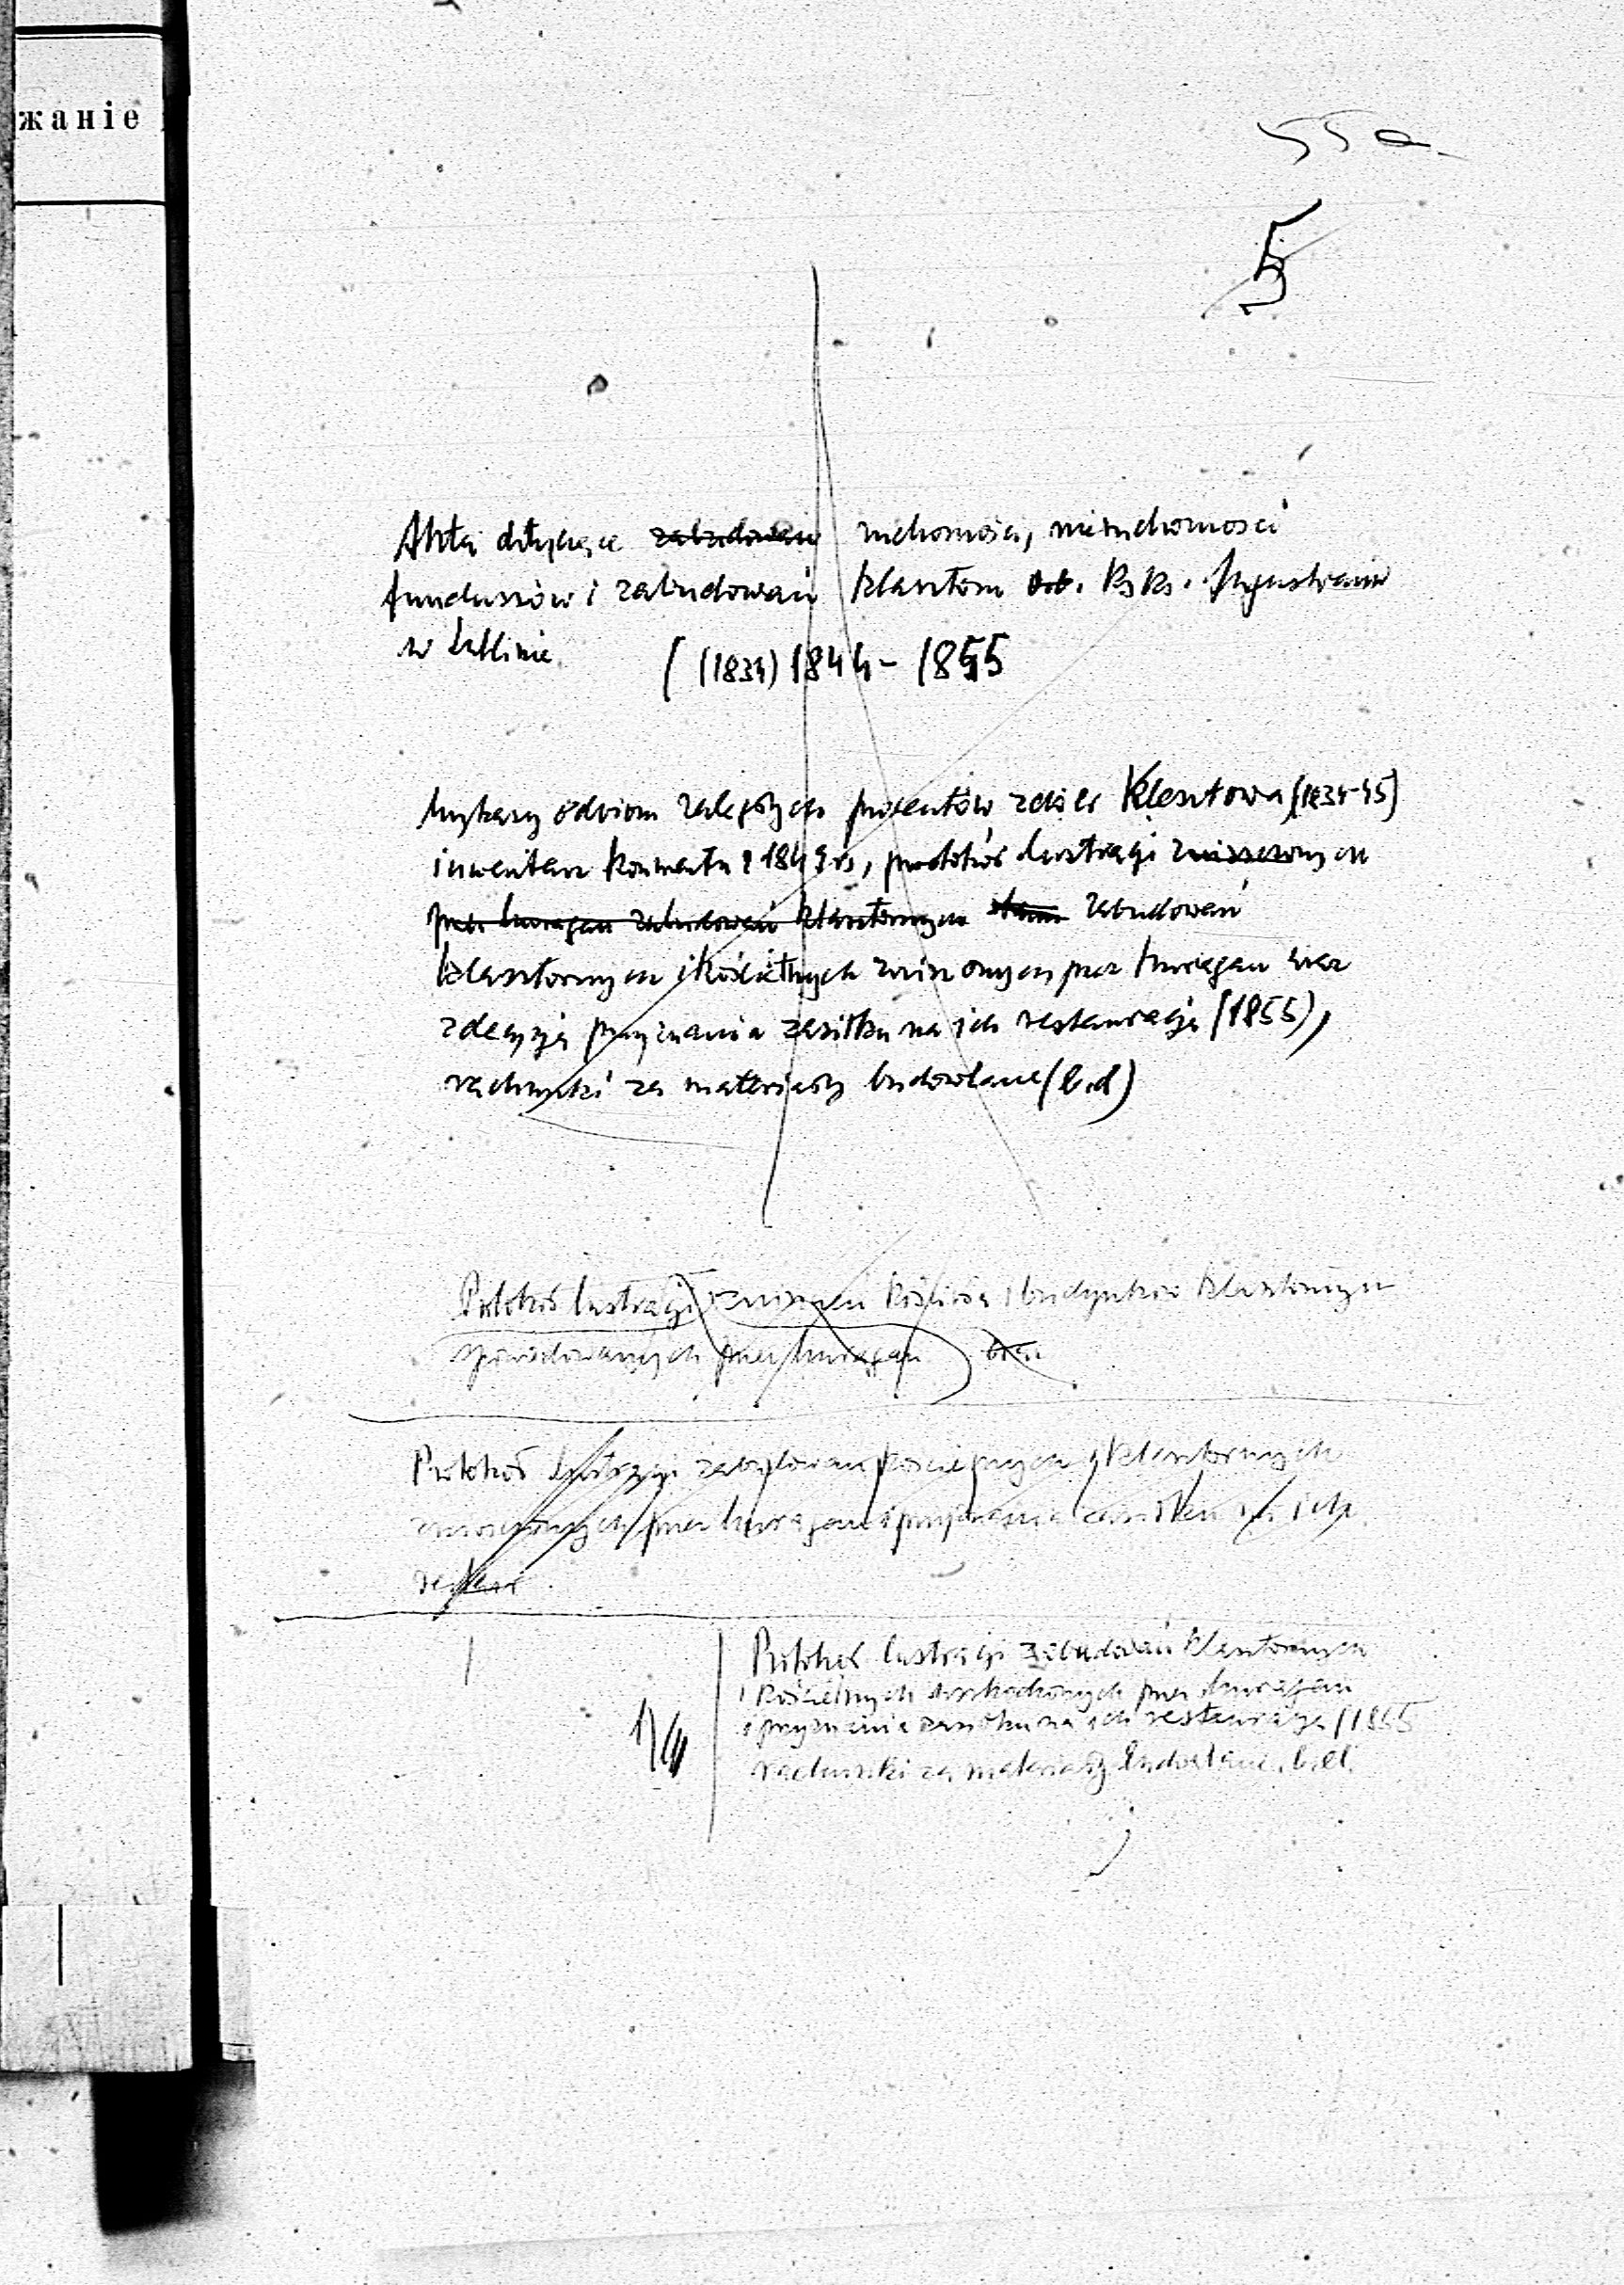 жаніе
55a.
5
Akta dotyczące zabudowań ruchomości, nieruchomości
funduszów i zabudowań klasztoru Ks Ks. Augustianów
w Lublinie
( (1834) 1844 - 1855
Wykazy odbioru zaległych procentów z dóbr Klesztowa (1834-45)
inwentarz konwentu z 1849 r., protokół lustracji zniszczonych
przez huragan zabudowań klasztornych zabudowań
klasztornych i kościelnych zniszczonych przez huragan wraz
z decyzją przyznania zasiłku na ich restaurację (1855),
rachunki za materiały budowlane (b.d)
Protokół lustracji zniszczeń kościoła i budynków klasztornych
spowodowanych przez huragan
Protokół lustracji zabudowań kościelnych i klasztornych
zniszczonych przez huragan i przyznania zasiłku na ich
Protokół lustracji zabudowań klasztornych
i kościelnych uszkodzonych przez huragan
i przyznania zasiłku na ich restaurację (1855
rachunki za materiały budowlane. b.d.